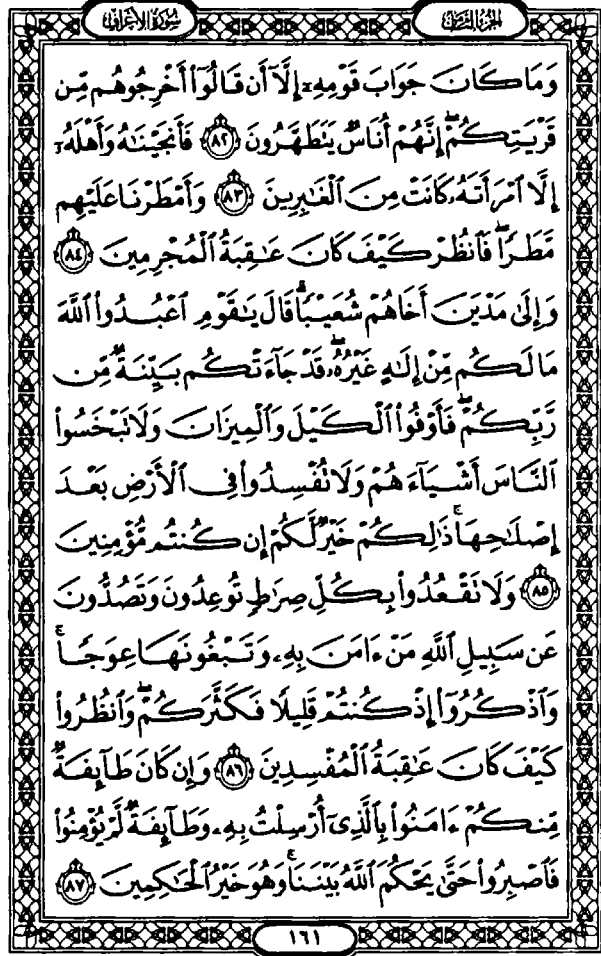 سُورَةُ الأَعْرَافِ الجُزْءُ الثَّامِنُ
وَمَا كَانَ جَوَابَ قَوْمِهِۦٓ إِلَّآ أَن قَالُوٓاْ أَخْرِجُوهُم مِّن
قَرْيَتِكُمْۖ إِنَّهُمْ أُنَاسٌ يَتَطَهَّرُونَ ٨٢ فَأَنجَيْنَٰهُ وَأَهْلَهُۥٓ
إِلَّا ٱمْرَأَتَهُۥ كَانَتْ مِنَ ٱلْغَٰبِرِينَ ٨٣ وَأَمْطَرْنَا عَلَيْهِم
مَّطَرًاۖ فَٱنظُرْ كَيْفَ كَانَ عَٰقِبَةُ ٱلْمُجْرِمِينَ ٨٤
وَإِلَىٰ مَدْيَنَ أَخَاهُمْ شُعَيْبًاۗ قَالَ يَٰقَوْمِ ٱعْبُدُواْ ٱللَّهَ
مَا لَكُم مِّنْ إِلَٰهٍ غَيْرُهُۥۖ قَدْ جَآءَتْكُم بَيِّنَةٌ مِّن
رَّبِّكُمْۖ فَأَوْفُواْ ٱلْكَيْلَ وَٱلْمِيزَانَ وَلَا تَبْخَسُواْ
ٱلنَّاسَ أَشْيَآءَهُمْ وَلَا تُفْسِدُواْ فِى ٱلْأَرْضِ بَعْدَ
إِصْلَٰحِهَاۚ ذَٰلِكُمْ خَيْرٌ لَّكُمْ إِن كُنتُم مُّؤْمِنِينَ
٨٥ وَلَا تَقْعُدُواْ بِكُلِّ صِرَٰطٍ تُوعِدُونَ وَتَصُدُّونَ
عَن سَبِيلِ ٱللَّهِ مَنْ ءَامَنَ بِهِۦ وَتَبْغُونَهَا عِوَجًاۚ
وَٱذْكُرُوٓاْ إِذْ كُنتُمْ قَلِيلًا فَكَثَّرَكُمْۖ وَٱنظُرُواْ
كَيْفَ كَانَ عَٰقِبَةُ ٱلْمُفْسِدِينَ ٨٦ وَإِن كَانَ طَآئِفَةٌ
مِّنكُمْ ءَامَنُواْ بِٱلَّذِىٓ أُرْسِلْتُ بِهِۦ وَطَآئِفَةٌ لَّمْ يُؤْمِنُواْ
فَٱصْبِرُواْ حَتَّىٰ يَحْكُمَ ٱللَّهُ بَيْنَنَاۚ وَهُوَ خَيْرُ ٱلْحَٰكِمِينَ ٨٧
١٦١